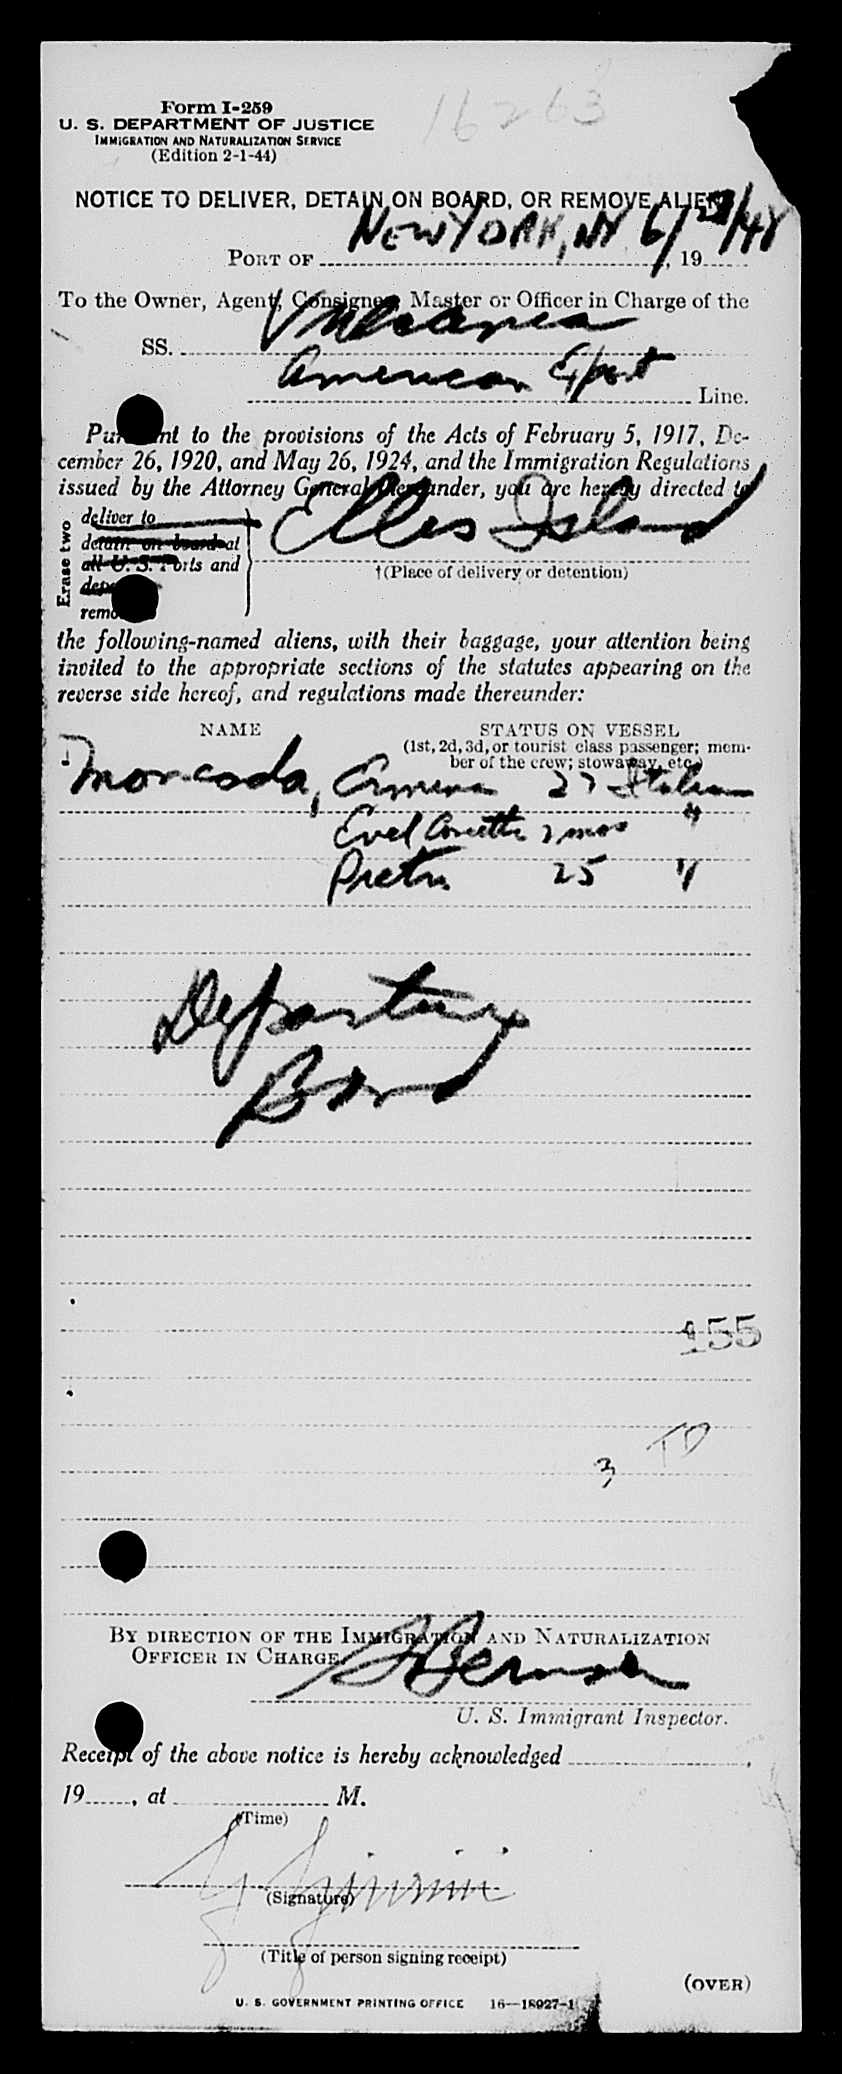 16263
Form I-259
U. S. DEPARTMENT OF JUSTICE
IMMIGRATION AND NATURALIZATION SERVICE
(Edition 2-1-44)
NOTICE TO DELIVER, DETAIN ON BOARD, OR REMOVE ALIEN
PORT OF NEW YORK, NY 6/ /48, 19
To the Owner, Agent, Consignee, Master or Officer in Charge of the
SS. Vulcania
American Export Line.
Pursuant to the provisions of the Acts of February 5, 1917, De-
cember 26, 1920, and May 26, 1924, and the Immigration Regulations
issued by the Attorney General thereunder, you are hereby directed to
Erase two
deliver to
detain on board at
all U. S. Ports and
remo
Ellis Island
†(Place of delivery or detention)
the following-named aliens, with their baggage, your attention being
invited to the appropriate sections of the statutes appearing on the
reverse side hereof, and regulations made thereunder:
NAME STATUS ON VESSEL
(1st, 2d, 3d, or tourist class passenger; mem-
ber of the crew; stowaway, etc.)
27 Italian
mos "
25 "
Departure
Bond
155
TD
3
BY DIRECTION OF THE IMMIGRATION AND NATURALIZATION
OFFICER IN CHARGE.
U. S. Immigrant Inspector.
Receipt of the above notice is hereby acknowledged ,
19 , at M.
(Time)
(Signature)
(Title of person signing receipt)
(OVER)
U. S. GOVERNMENT PRINTING OFFICE 16—18027-1